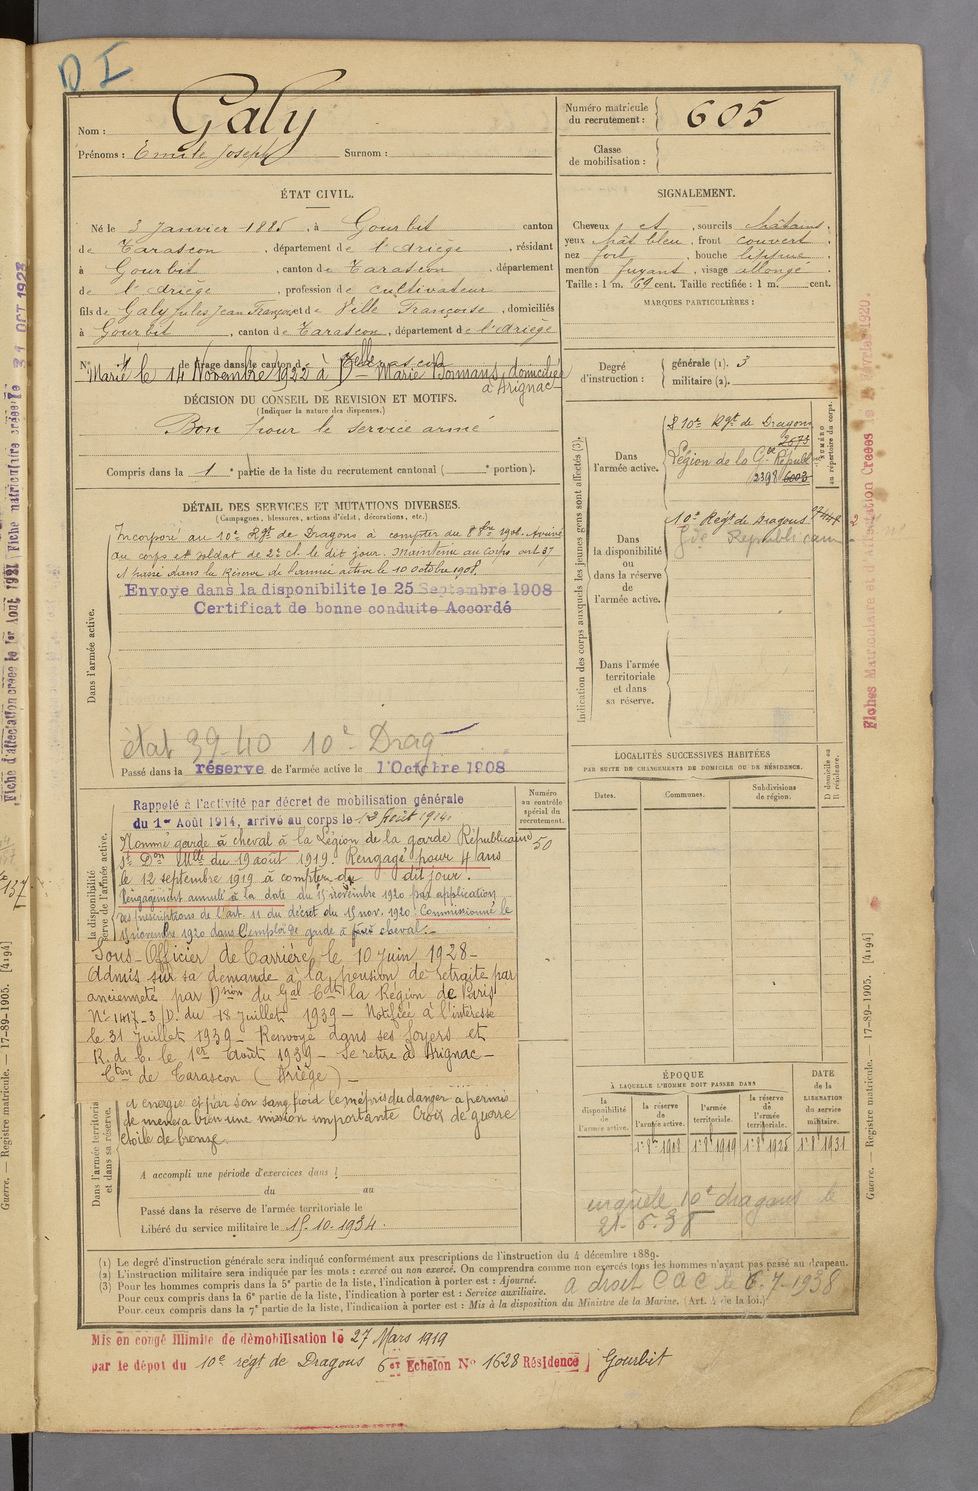 D I
Nom : Galy
Prénoms : Emile Joseph Surnom :
Numéro matricule du recrutement : 605
Classe de mobilisation :
ÉTAT CIVIL.
Né le 3 Janvier 1885, à Gourbit canton
de Tarascon, département de l'Ariège, résidant
à Gourbit, canton de Tarascon, département
de l'Ariège, profession de cultivateur
fils de Galy Jules Jean François et de Ville Françoise, domiciliés
à Gourbit, canton de Tarascon, département de l'Ariège
N° 1 de tirage dans le canton de Tarascon
Marié le 14 Novembre 1922 à Delle Marie Bonmans, domiciliée
à Arignac
DÉCISION DU CONSEIL DE REVISION ET MOTIFS.
(Indiquer la nature des dispenses.)
Bon pour le service armé
Compris dans la 1e partie de la liste du recrutement cantonal ( e portion).
SIGNALEMENT.
Cheveux et, sourcils châtains,
yeux chât bleu, front couvert,
nez fort, bouche lippue,
menton fuyant, visage allongé.
Taille : 1 m. 69 cent. Taille rectifiée : 1 m. cent.
MARQUES PARTICULIÈRES :
Degré d'instruction : générale (1). 3
militaire (2).
DÉTAIL DES SERVICES ET MUTATIONS DIVERSES.
(Campagnes, blessures, actions d'éclat, décorations, etc.)
Incorporé au 10e Rgt de Dragons à compter du 8 8bre 190. Arrivé
au corps et soldat de 2e cl. le dit jour. Maintenu au corps art 37
A passé dans la Réserve de l'armée active le 10 octobre 1908.
Envoye dans la disponibilite le 25 Septembre 1908
Certificat de bonne conduite Accordé
Dans l'armée active.
état 39-40 10e Drag
Passé dans la réserve de l'armée active le 1 Octobre 1908
Indication des corps auxquels les jeunes gens sont affectés (3).
NUMÉRO au répertoire du corps.
Dans l'armée active.
10e Rgt de Dragons
2673
Légion de la Gde Républ
2398 6003
Dans la disponibilité ou dans la réserve de l'armée active.
10e Régt de Dragons
Gde Republicaine
Dans l'armée territoriale et dans sa réserve.
LOCALITÉS SUCCESSIVES HABITÉES
PAR SUITE DE CHANGEMENTS DE DOMICILE OU DE RÉSIDENCE.
Dates. Communes. Subdivisions de région. D domicile ou R résidence.
Numéro au contrôle spécial du recrutement.
50
Rappelé à l'activité par décret de mobilisation générale
du 1er Août 1914, arrivé au corps le 12 Août 1914.
Nommé garde à cheval à la Légion de la garde Républicaine
st Don Mlle du 19 août 1919. Rengagé pour 4 ans
le 12 septembre 1919 à compter du dit jour.
Rengagement annulé à la date du 15 novembre 1920 par application
des prescriptions de l'art. 11 du décret du 15 nov. 1920. Commissionné le
15 novembre 1920 dans l'emploi de garde à cheval.
Sous-Officier de Carrière le 10 Juin 1928 -
Admis sur sa demande à la pension de retraite par
ancienneté par Dsion du Gal Cdt la Région de Paris
N° 1417-3/D. du 18 Juillet 1939 - Notifiée à l'intéressé
le 31 Juillet 1939 - Renvoyé dans ses foyers et
R. de C. le 1er Août 1939 - Se retire à Arignac -
Cton de Tarascon (Ariège) -
énergie et par son sang froid le mépris du danger a permis
de mener à bien une mission importante Croix de guerre
étoile de bronze.
Dans l'armée territoriale et dans sa réserve.
A accompli une période d'exercices dans l
du au
Passé dans la réserve de l'armée territoriale le
Libéré du service militaire le 15.10.1934.
ÉPOQUE
À LAQUELLE L'HOMME DOIT PASSER DANS
la disponibilité de l'armée active. la réserve de l'armée active. l'armée territoriale. la réserve de l'armée territoriale.
DATE de la LIBÉRATION du service militaire.
1er 8e 1908 1er 8e 1919 1er 8e 1925 1er 8e 1931
10e dragons le
21-5-38
(1) Le degré d'instruction générale sera indiqué conformément aux prescriptions de l'instruction du 4 décembre 1889.
(2) L'instruction militaire sera indiquée par les mots : exercé ou non exercé. On comprendra comme non exercés tous les hommes n'ayant pas passé au drapeau.
(3) Pour les hommes compris dans la 5e partie de la liste, l'indication à porter est : Ajourné.
Pour ceux compris dans la 6e partie de la liste, l'indication à porter est : Service auxiliaire.
Pour ceux compris dans la 7e partie de la liste, l'indication à porter est : Mis à la disposition du Ministre de la Marine. (Art. 4 de la loi.)
a droit C A C le 6-7-1938
Mis en congé illimité de démobilisation le 27 Mars 1919
par le dépot du 10e régt de Dragons 6e Echelon N° 1628 Résidence Gourbit
Fiche d'affectation créée le 1er Août 1921 Fiche matriculaire créée le 31 OCT 1923
Guerre. — Registre matricule. — 17-89-1905. [4194]
Fiches Matriculaire et d'affectation Creees le Février 1920.
Guerre. — Registre matricule. — 17-89-1905. [4194]